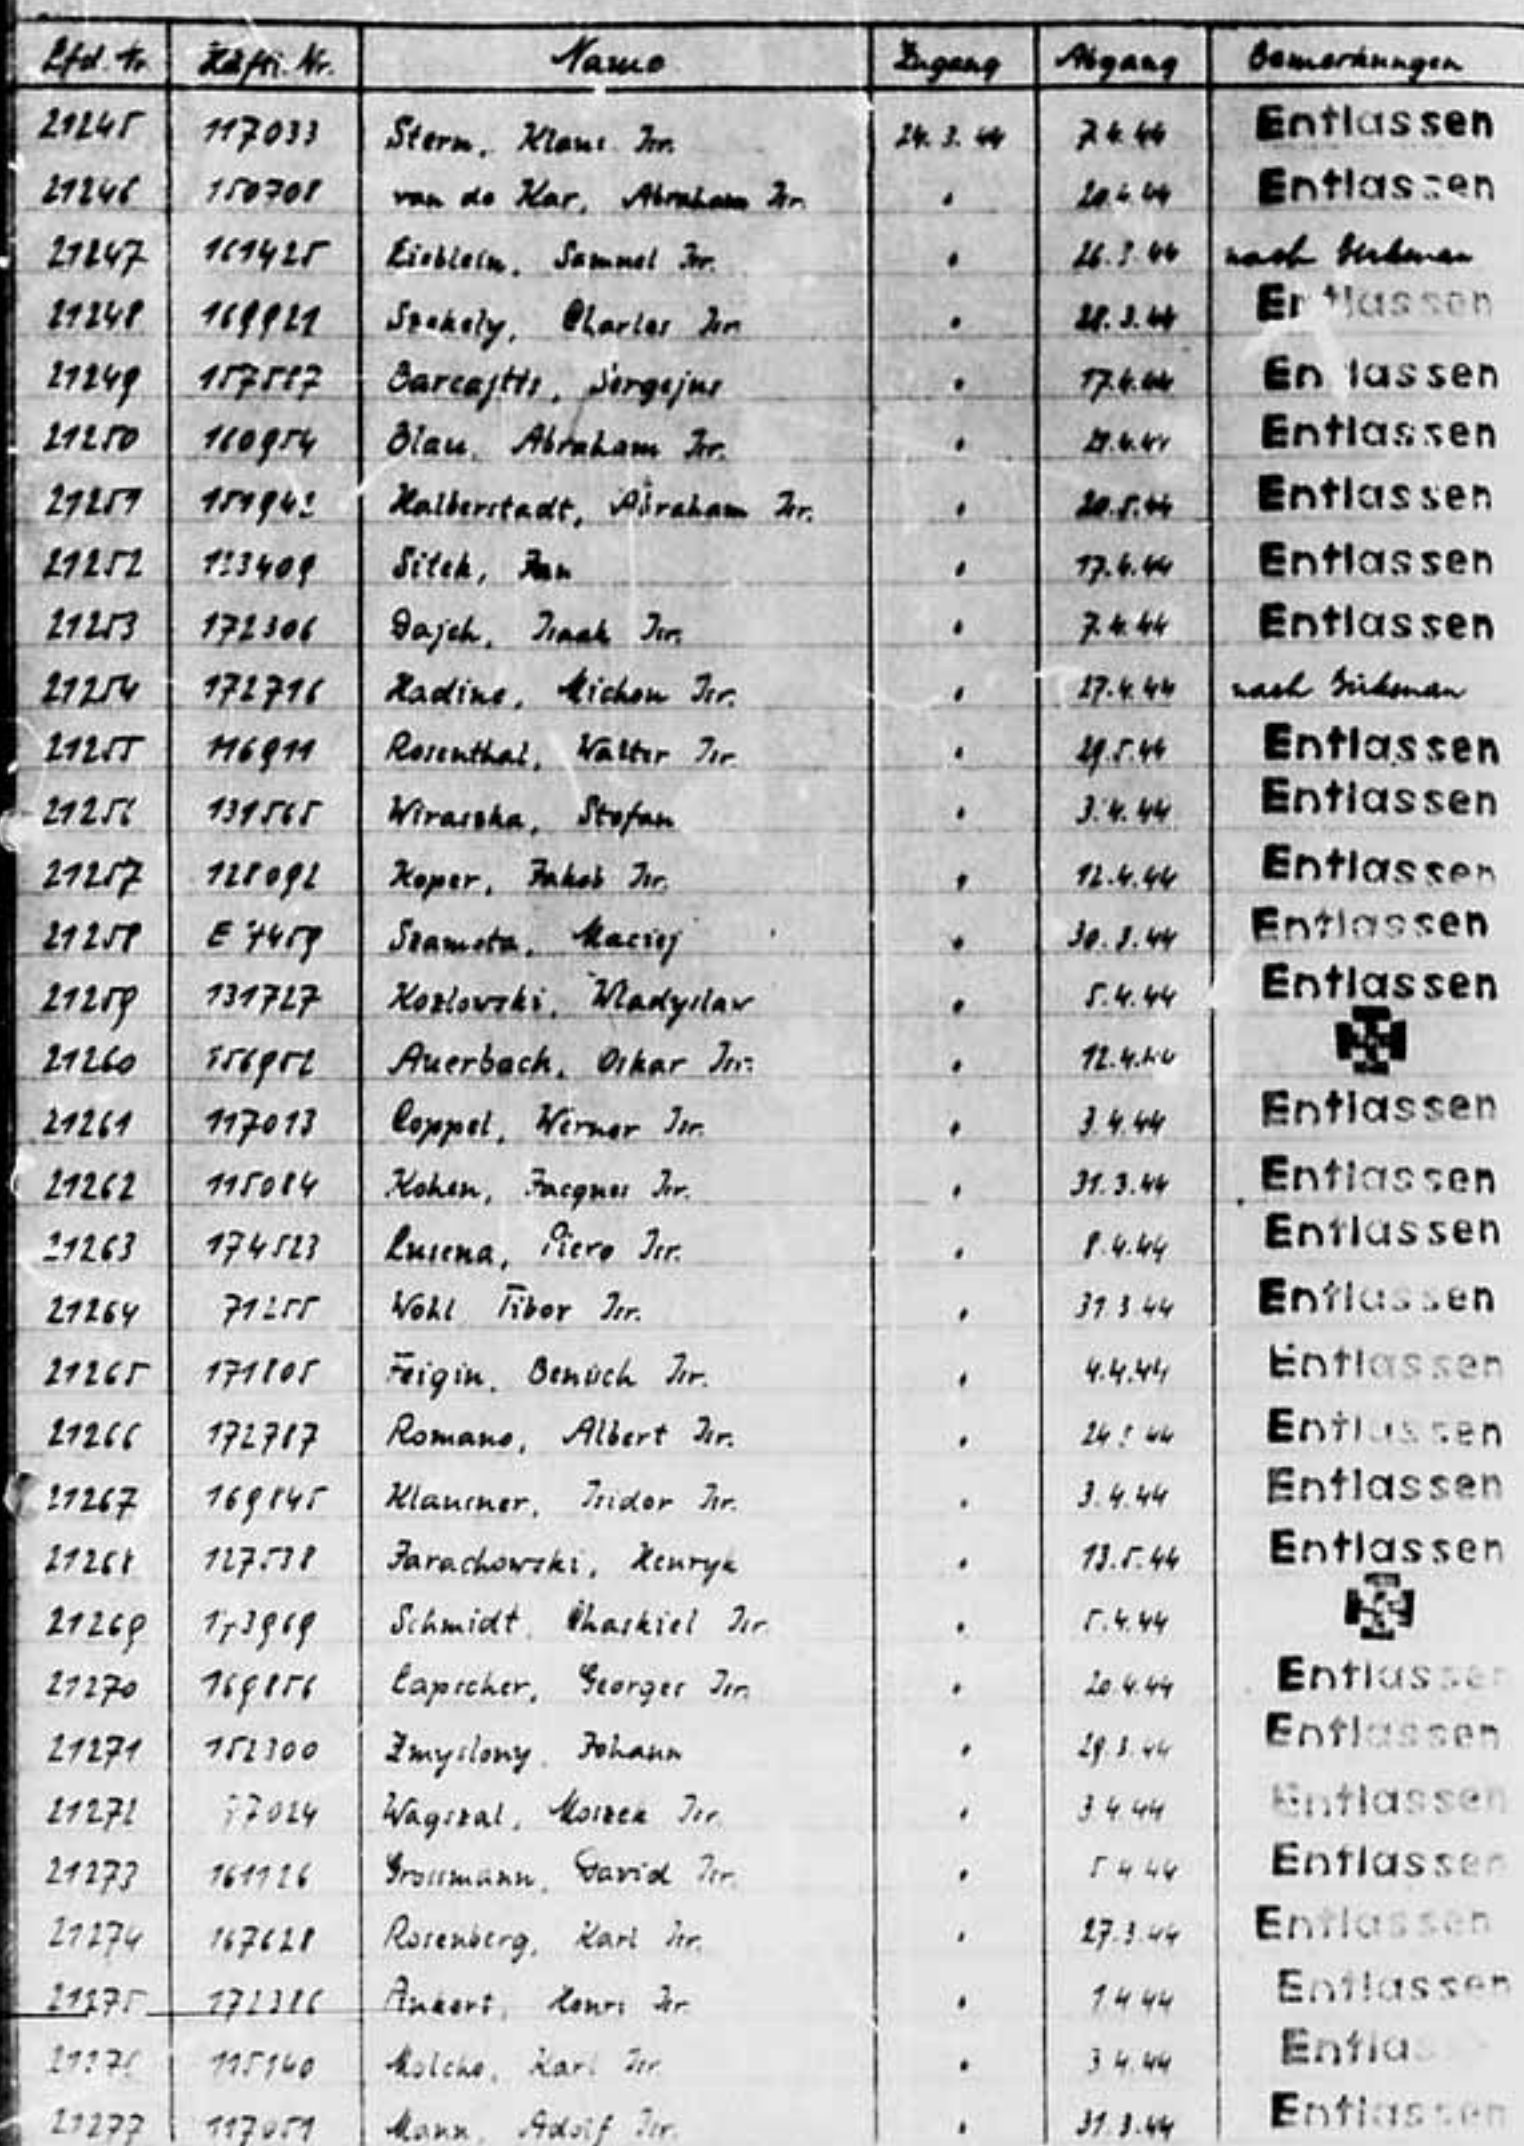 Lfd. Nr. Häftl. Nr. Name Zugang Abgang Bemerkungen
21245 117033 Stern, Klaus Isr. 24. 3. 44 7.4.44 Entlassen
21246 150708 van de Kar, Abraham Isr. " 20.4.44 Entlassen
21247 161425 Samuel Isr. " 26.3.44 nach Birkenau
21248 169921 Szekely, Charles Isr. " 28.3.44 Entlassen
21249 157587 Sergejus " 17.4.44 Entlassen
21250 160954 Blau, Abraham Isr. " Entlassen
21251 Halberstadt, Abraham Isr. " 20.5.44 Entlassen
21252 123409 Sitek, Jan " 17.4.44 Entlassen
21253 172306 Dajch, Isaak Isr. " 7.4.44 Entlassen
21254 172716 Hadino, Michon Isr. " 27.4.44 nach Birkenau
21255 116911 Rosenthal, Walter Isr. " 29.5.44 Entlassen
21256 131565 Wiraszka, Stefan " 3.4.44 Entlassen
21257 128092 Koper, Jakob Isr. " 12.4.44 Entlassen
21258 E 4459 Szameta, Maciej " 30.3.44 Entlassen
21259 131727 Kozlowski, Wladyslaw " 5.4.44 Entlassen
21260 156952 Auerbach, Oskar Isr. " 12.4.44
21261 117013 Coppel, Werner Isr. " 3.4.44 Entlassen
21262 115084 Kohen, Jacques Isr. " 31.3.44 Entlassen
21263 174523 Lusena, Piero Isr. " 8.4.44 Entlassen
21264 71255 Wohl Tibor Isr. " 31.3.44 Entlassen
21265 171805 Feigin, Benüch Isr. " 4.4.44 Entlassen
21266 172787 Romano, Albert Isr. " Entlassen
21267 169845 Klausner, Isidor Isr. " 3.4.44 Entlassen
21268 127538 Jarachowski, Henryk " 13.5.44 Entlassen
21269 Schmidt, Chaskiel Isr. " 5.4.44
21270 169856 Capscher, Georges Isr. " 20.4.44 Entlassen
21271 152300 Zmyslony, Johann " 29.3.44 Entlassen
21272 Wagszal, Moszek Isr. " 3.4.44 Entlassen
21273 161126 Grossmann, David Isr. " 5.4.44 Entlassen
21274 167628 Rosenberg, Karl Isr. " 27.3.44 Entlassen
21275 172386 Ankert, Henri Isr. " 1.4.44 Entlassen
21276 115140 Molcho, Karl Isr. " 3.4.44 Entlassen
21277 117051 Mann, Adolf Isr. " 31.3.44 Entlassen